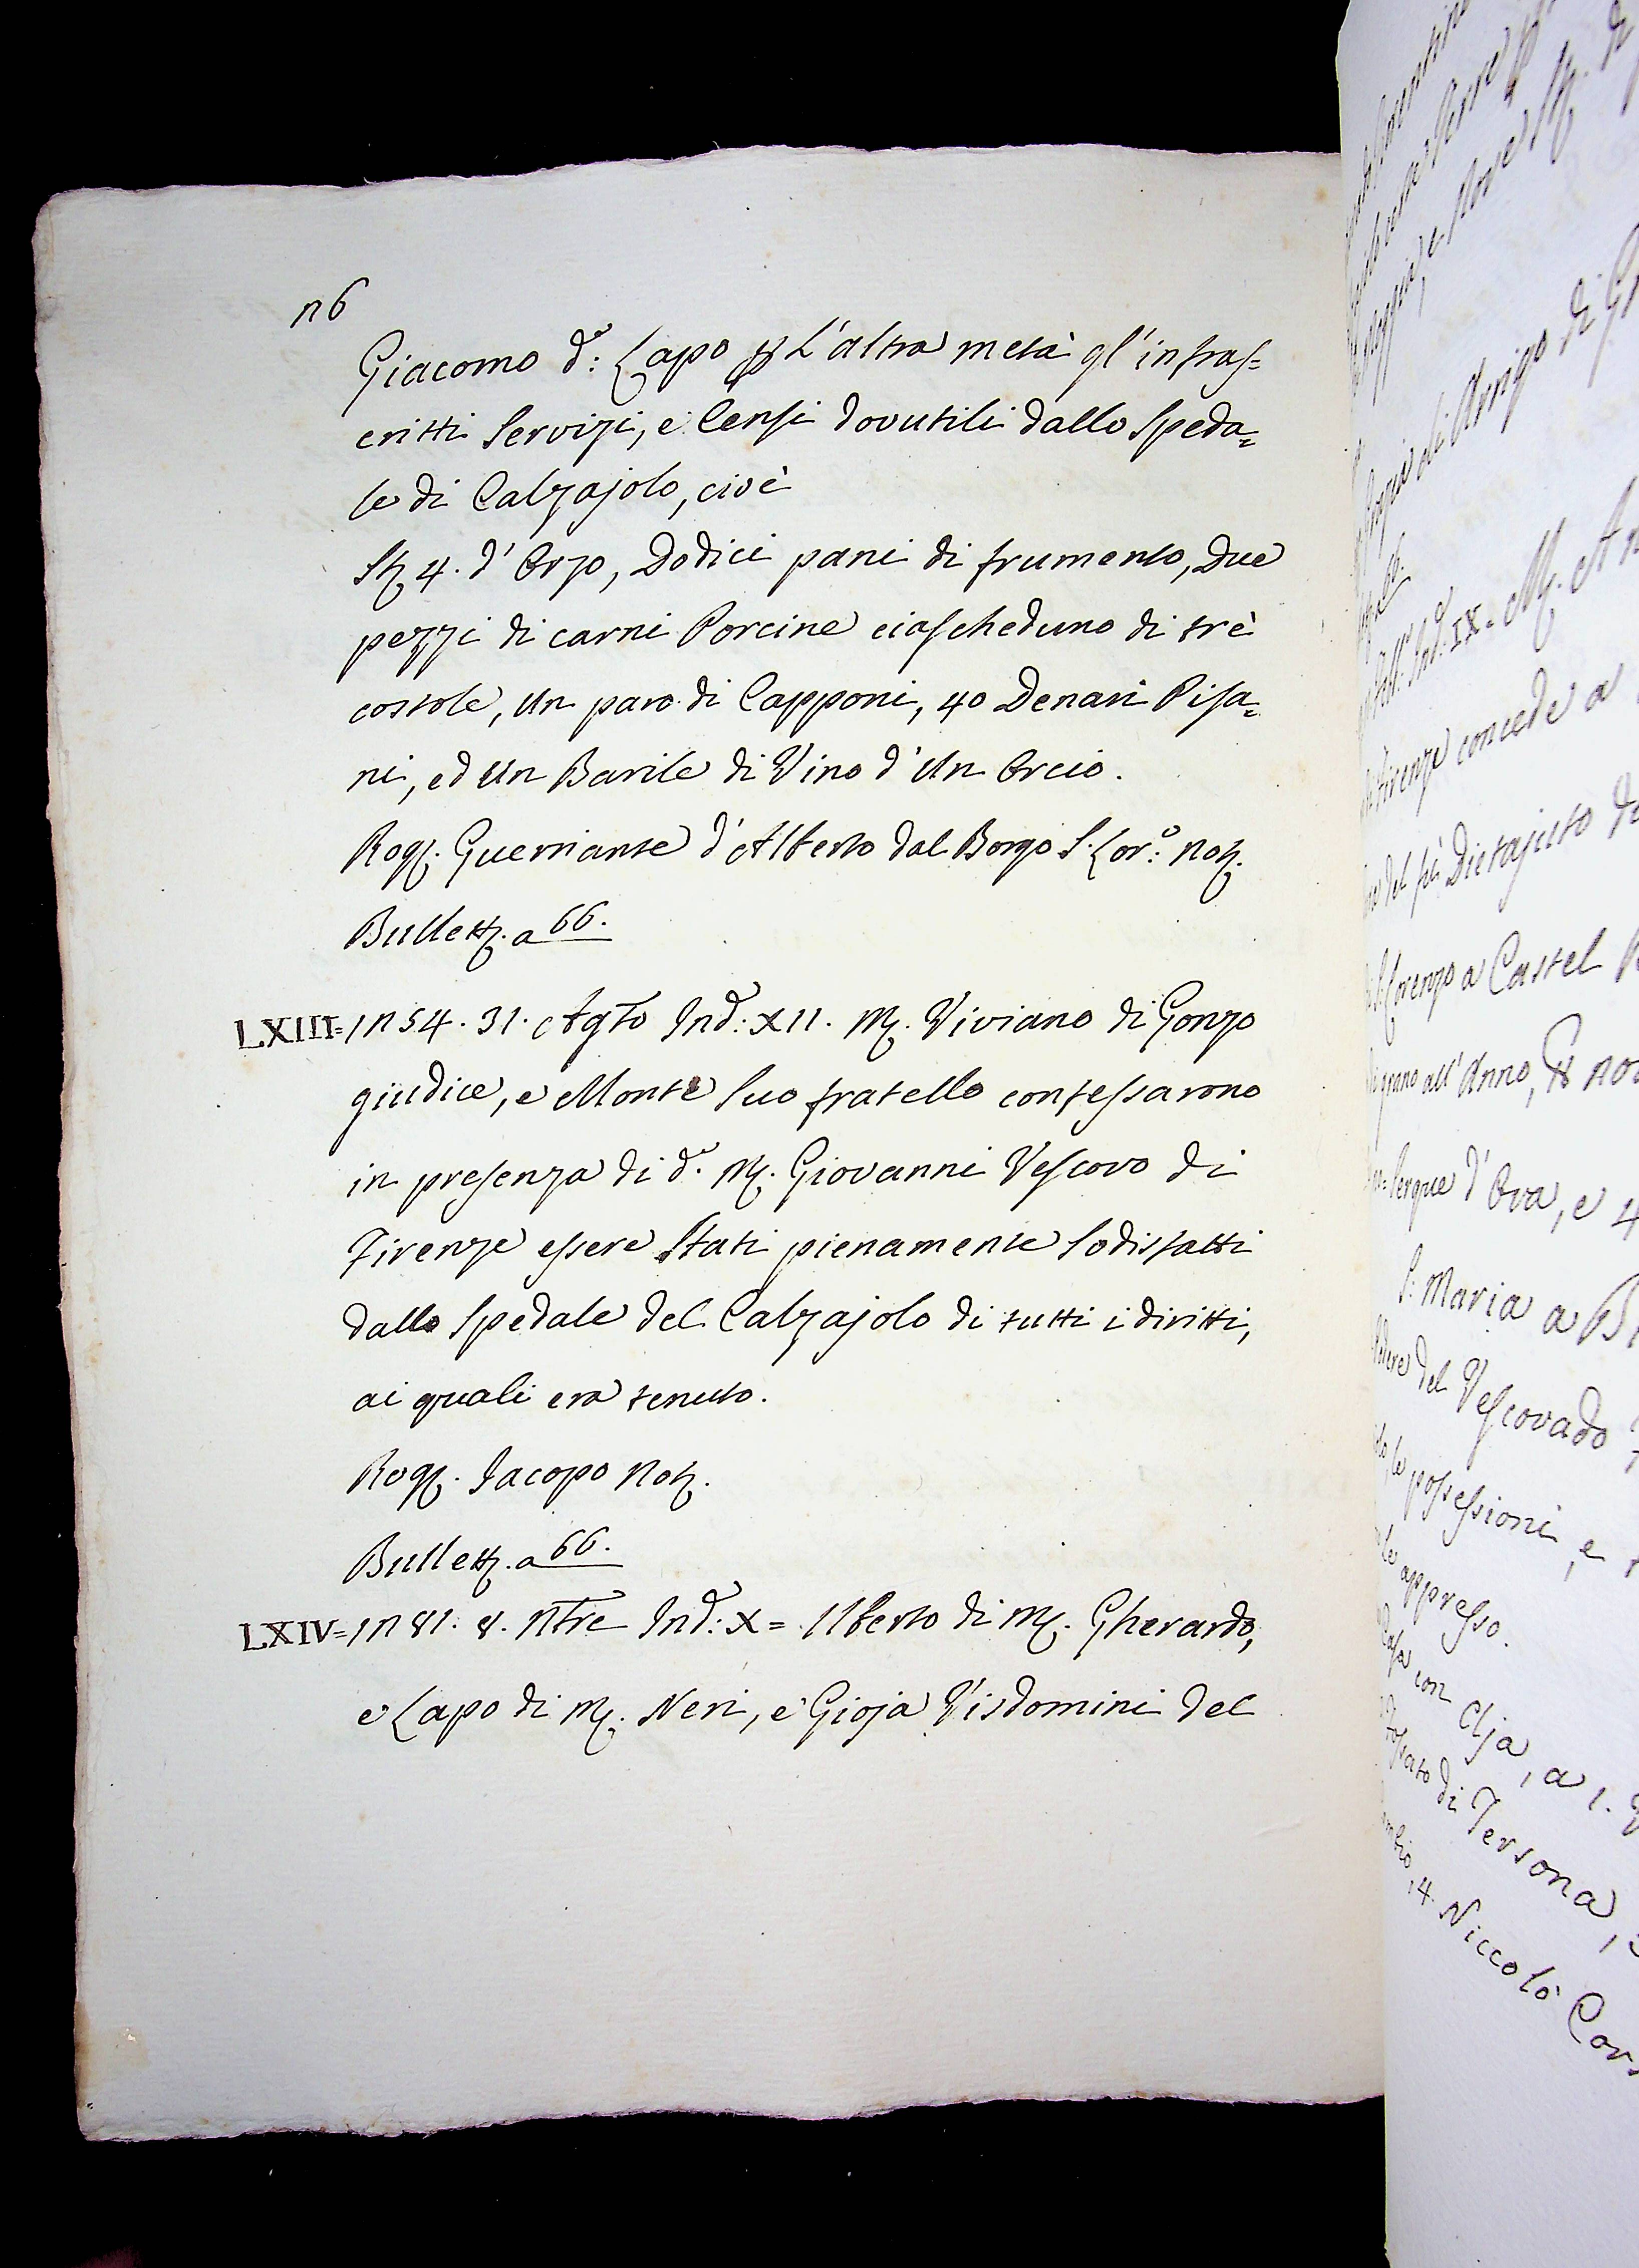 26
Giacomo d.º: Lapo p L'altra metà gl'infras-
critti Servizi, e Censi dovutili dallo Speda=
le di Calzajolo, cioè
St. 4. d'Orzo, Dodici pani di frumento, Due
pezzi di carni Porcine ciascheduno di trè
costole, Un paro di Capponi, 40 Denari Pisa=
ni, ed Un Barile di Vino d'Un Orcio.
Rog. Guerriante d'Alberto dal Borgo S. Lor.º: Not.
Bullett. a 66.
LXIII= 1254. 31. Agto Ind.: XII. M. Viviano di Gonzo
giudice, e Monte Suo fratello confessarono
in presenza di d.º M. Giovanni Vescovo di
Firenze essere Stati pienamente Sodisfatti
dallo Spedale del Calzajolo di tutti i diritti,
ai quali era tenuto.
Rog. Jacopo Not.
Bullett. a 66.
LXIV= 1281. 8. Nbre Ind.: X= Uberto di M. Gherardo,
e Lapo di M. Neri, e Gioja Visdomini del
di Arrigo di
IX. M.
Firenze concede a
del fù Dietajuto
Lorenzo a Castel
all'Anno,
serque d'Ova, e 4
S. Maria a
del Vescovado
le possessioni, e
appresso.
con Aja, a 1.
di Tersona,
14. Niccolò